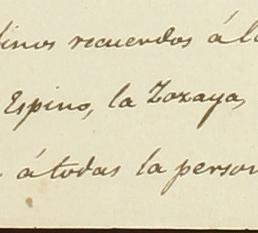 finos recuerdos á la
Espino, la Zozaya,
á todas la person